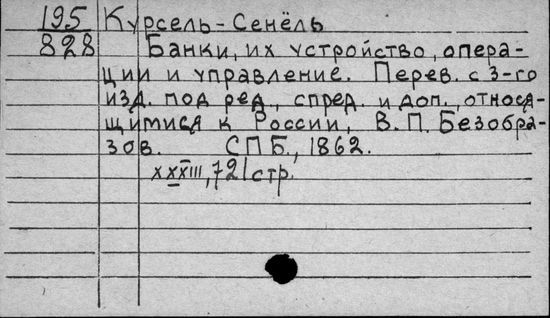 195 Курсель-Сенёль
828 Банки, их устройство, опера-
ции и управление. Перев. с 3-го
изд. под ред., с пред. и доп., относя-
щимися к России, В. П. Безобра-
зов. СПБ., 1862.
XXXIII, 721 стр.